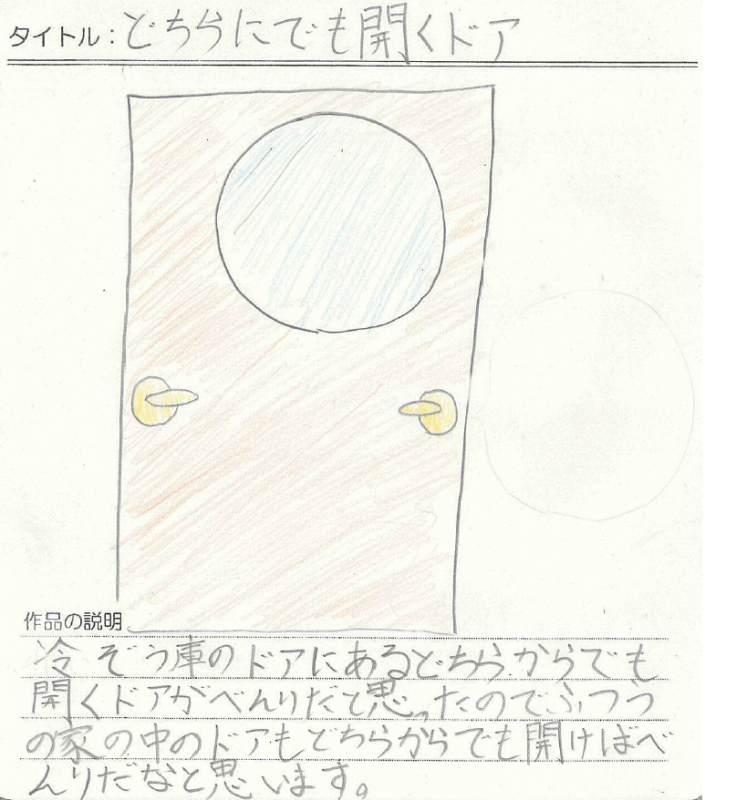 タイトル：どちらにでも開くドア
作品の説明
冷ぞう庫のドアにあるどちらからでも
開くドアがべんりだと思ったのでふつう
の家の中のドアもどちらからでも開けばべ
んりだなと思います。